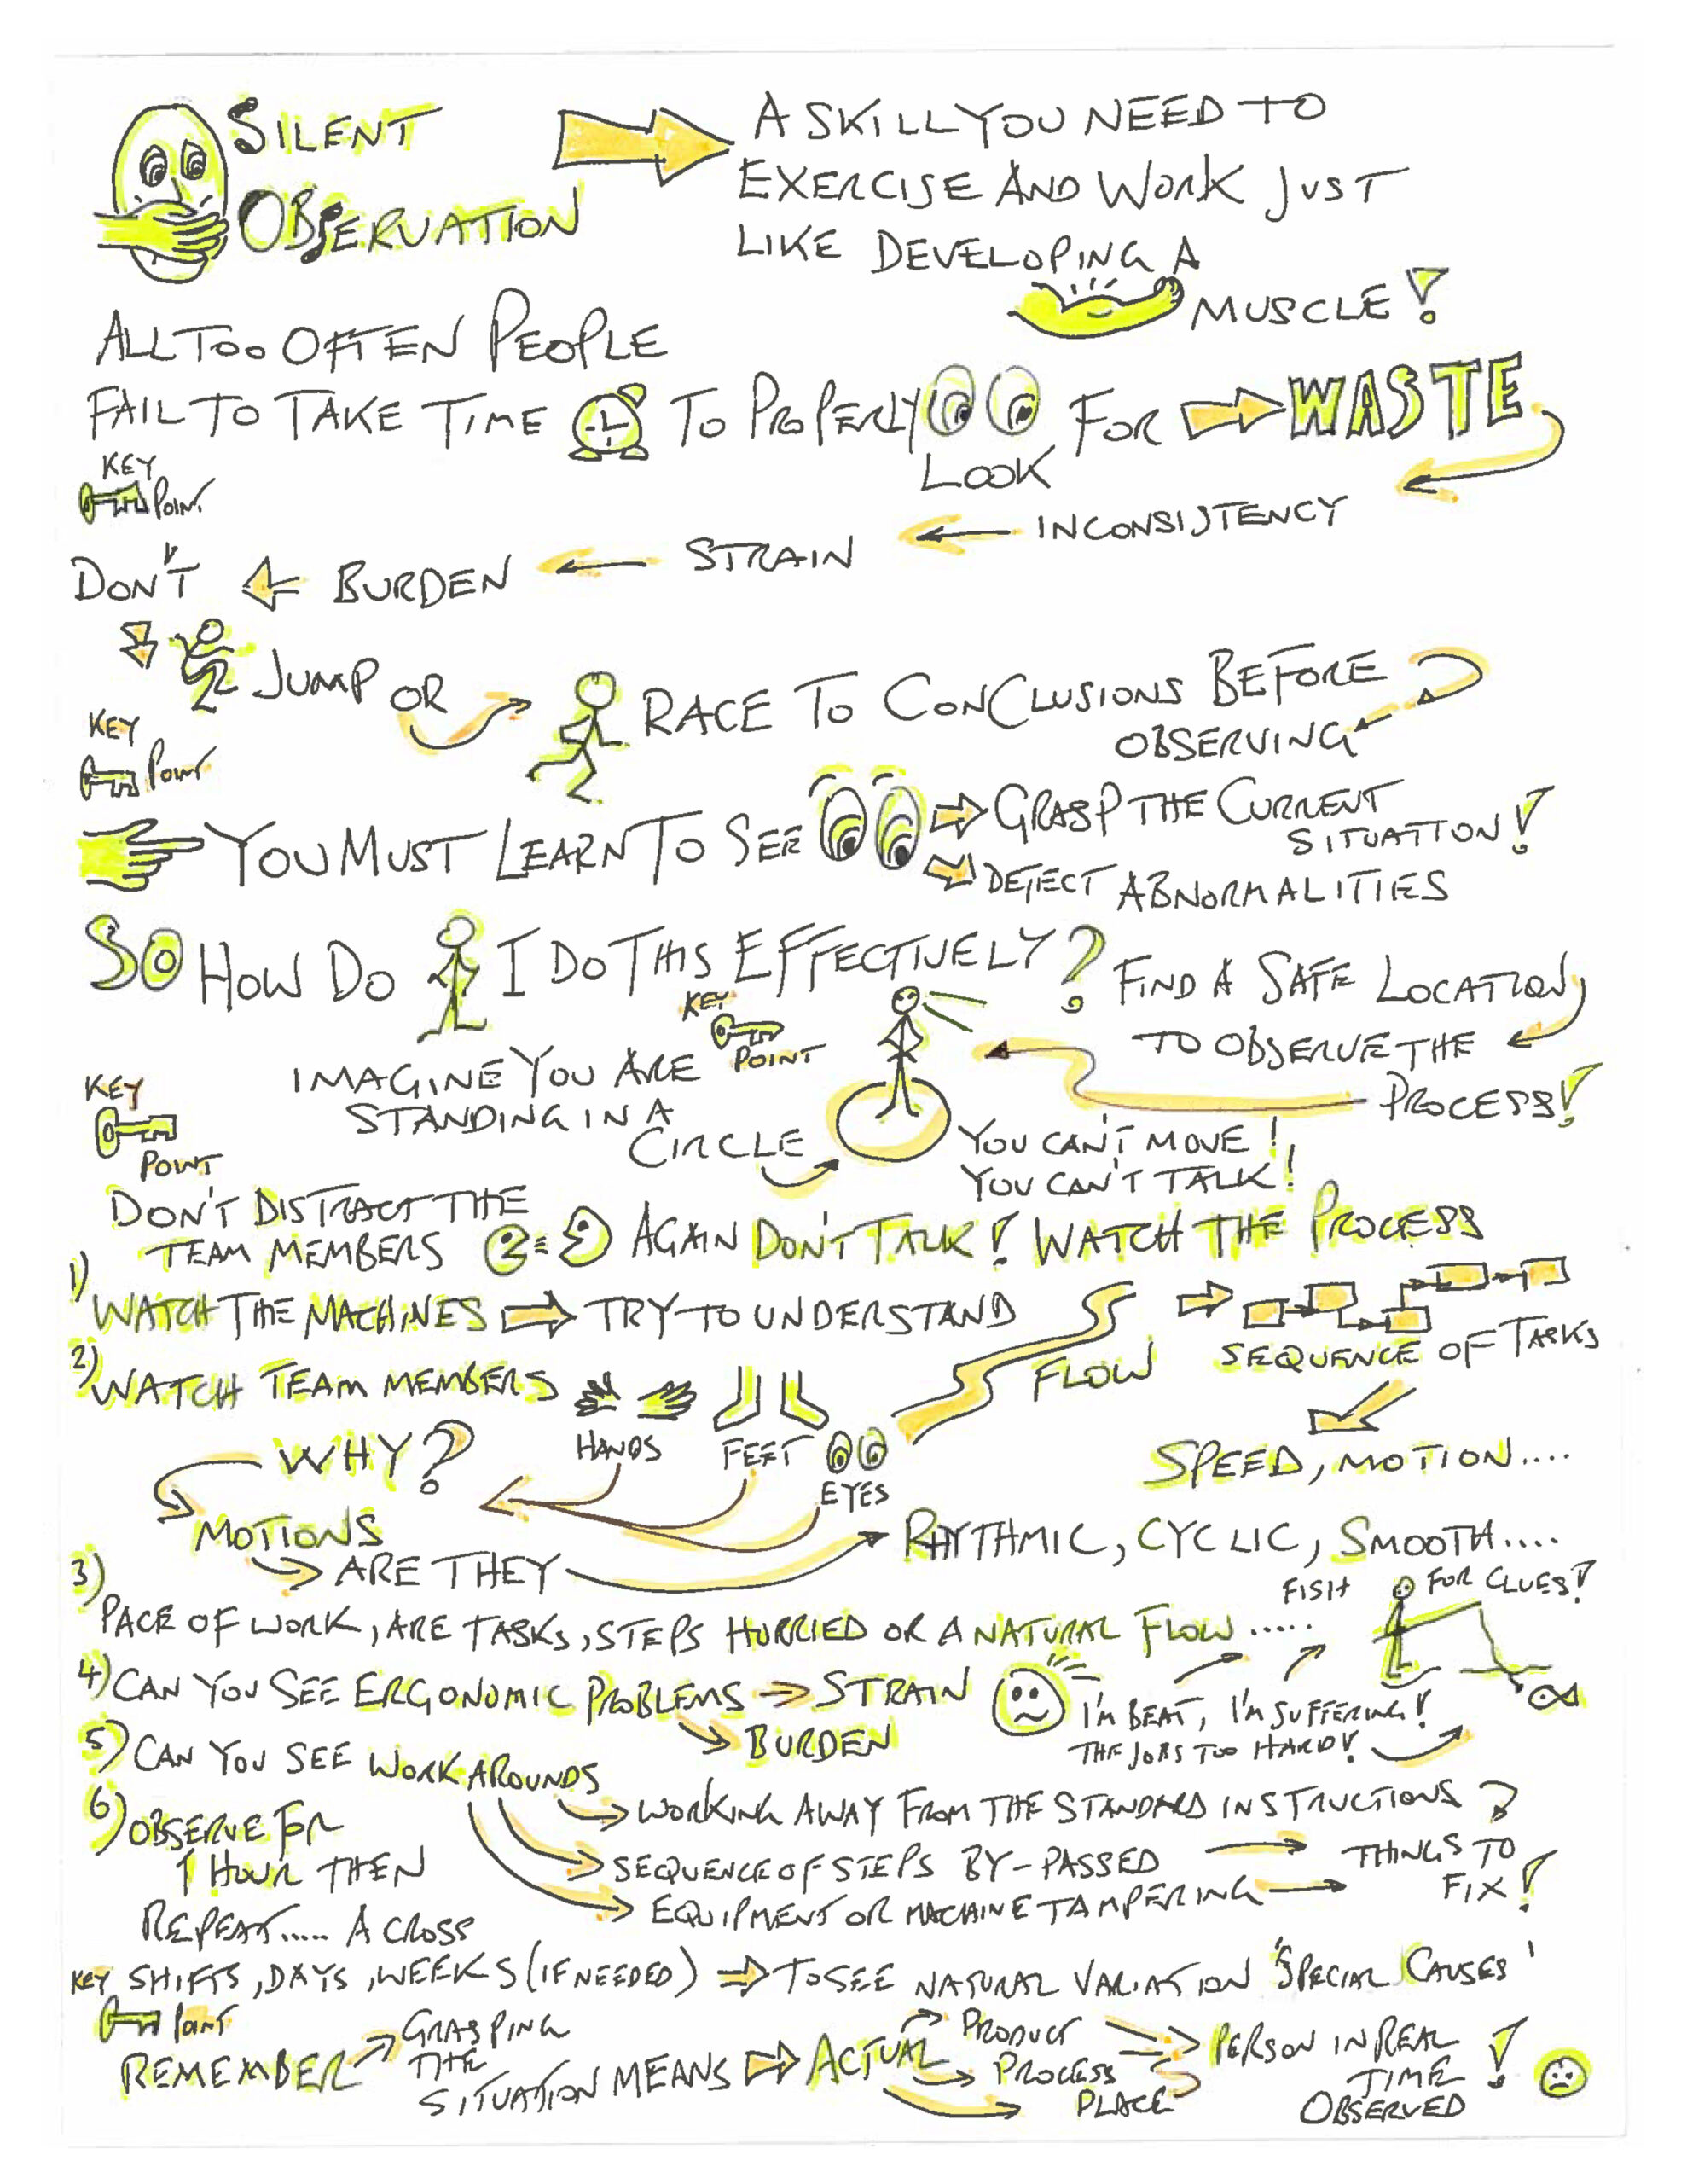 SILENT
OBSERVATION
A SKILL YOU NEED TO
EXERCISE AND WORK JUST
LIKE DEVELOPING A
MUSCLE!
ALL TOO OFTEN PEOPLE
FAIL TO TAKE TIME TO PROPERLY LOOK FOR WASTE
KEY POINT
INCONSISTENCY
STRAIN
BURDEN
DON'T
JUMP OR RACE TO CONCLUSIONS BEFORE
OBSERVING
KEY POINT
YOU MUST LEARN TO SEE
GRASP THE CURRENT
SITUATION!
DETECT ABNORMALITIES
SO HOW DO I DO THIS EFFECTIVELY?
FIND A SAFE LOCATION,
TO OBSERVE THE
PROCESS!
KEY POINT
IMAGINE YOU ARE
STANDING IN A
CIRCLE
YOU CAN'T MOVE!
YOU CAN'T TALK!
KEY POINT
DON'T DISTRACT THE
TEAM MEMBERS
AGAIN DON'T TALK! WATCH THE PROCESS
1) WATCH THE MACHINES TRY TO UNDERSTAND
FLOW
SEQUENCE OF TASKS
SPEED, MOTION....
2) WATCH TEAM MEMBERS
HANDS
FEET
EYES
WHY?
MOTIONS
ARE THEY
RHYTHMIC, CYCLIC, SMOOTH....
3) PACE OF WORK, ARE TASKS, STEPS HURRIED OR A NATURAL FLOW.....
FISH FOR CLUES!
4) CAN YOU SEE ERGONOMIC PROBLEMS STRAIN
BURDEN
I'M BEAT, I'M SUFFERING!
THE JOBS TOO HARD!
5) CAN YOU SEE WORK AROUNDS
WORKING AWAY FROM THE STANDARD INSTRUCTIONS?
SEQUENCE OF STEPS BY-PASSED
EQUIPMENT OR MACHINE TAMPERING
THINGS TO
FIX!
6) OBSERVE FOR
1 HOUR THEN
REPEAT..... ACROSS
SHIFTS, DAYS, WEEKS (IF NEEDED) TO SEE NATURAL VARIATION 'SPECIAL CAUSES'
KEY POINT
REMEMBER
GRASPING
THE
SITUATION MEANS ACTUAL
PRODUCT
PROCESS
PLACE
PERSON IN REAL
TIME
OBSERVED!